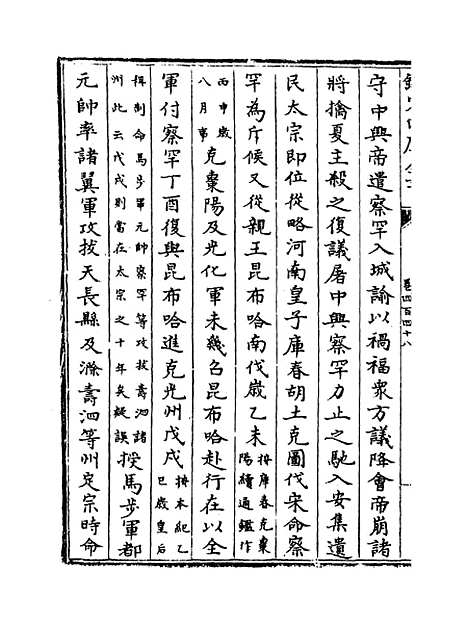 卷四百四十八
守中興帝遣察罕入城諭以禍福衆方議降會帝崩諸
將擒夏主殺之復議屠中興察罕力止之馳入安集遺
民太宗即位從略河南皇子庫春胡土克圖伐宋命察
罕為斥候又從親王昆布哈南伐歲乙未按庫春克棗陽續通鑑作
丙申歲八月事克棗陽及光化軍未幾召昆布哈赴行在以全
軍付察罕丁酉復與昆布哈進克光州戊戌按本紀乙巳歲皇后
稱制命馬步軍元帥察罕等攻拔壽泗諸洲此云戊戌則當在太宗之十年矣疑誤授馬步軍都
元帥率諸翼軍攻拔天長縣及滁壽泗等州定宗時命